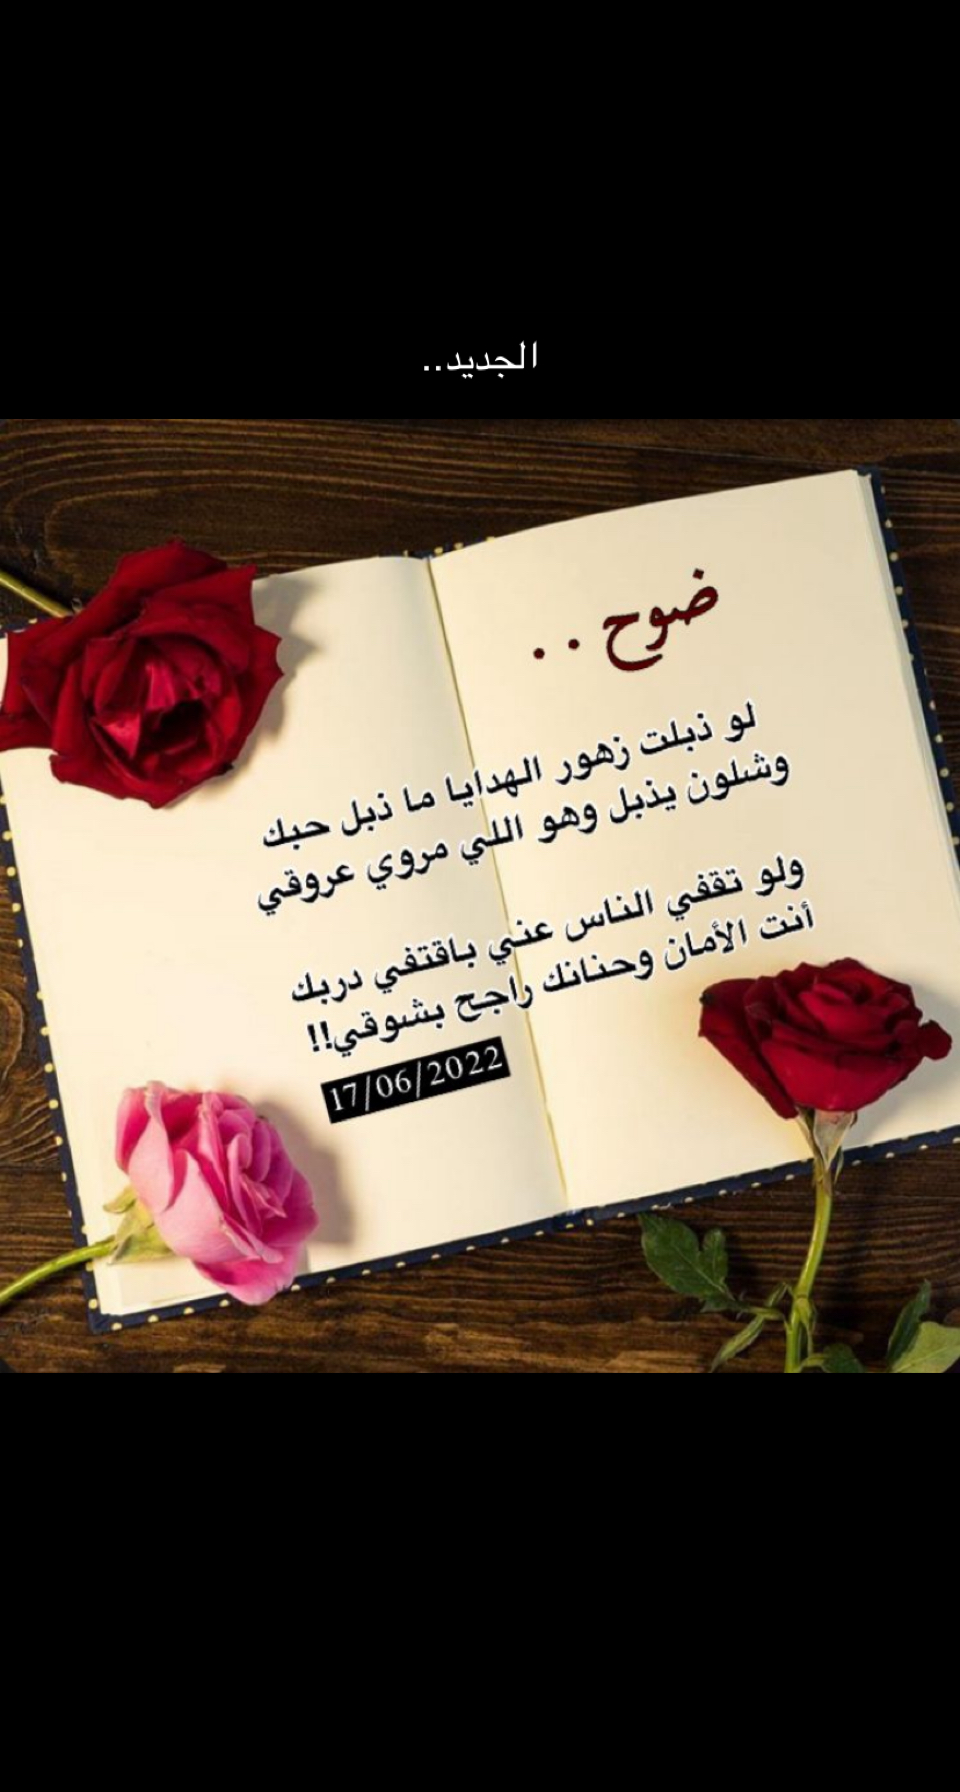 الجديد..
ضوح . .
لو ذبلت زهور الهدايا ما ذبل حبك
وشلون يذبل وهو اللي مروي عروقي
ولو تقفي الناس عني باقتفي دربك
أنت الأمان وحنانك راجح بشوقي!!
17/06/2022